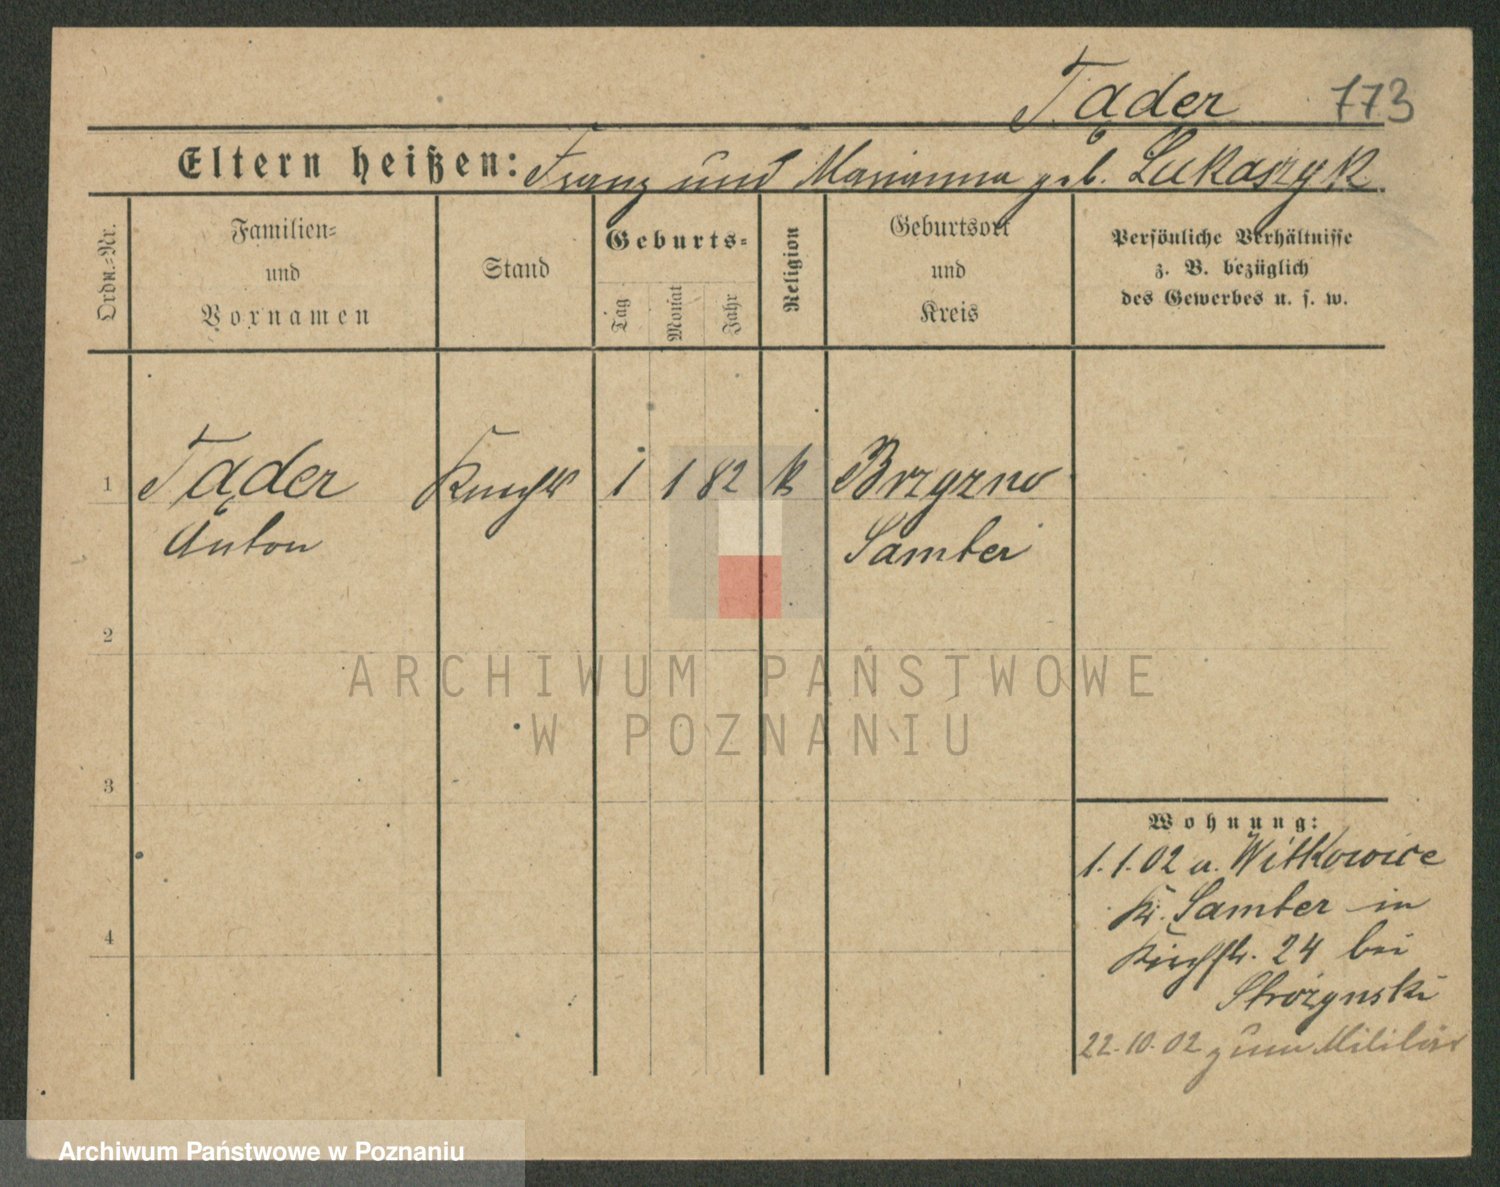 Tąder 773
Eltern heißen: Franz und Marianna geb. Lukaszyk.
Ordn.-Nr.
Familien-
und
Vornamen
Stand
Geburts-
Tag
Monat
Jahr
Religion
Geburtsort
und
Kreis
Persönliche Verhältnisse
z. B. bezüglich
des Gewerbes u. s. w.
1 Tąder Knecht 1 1 82 k Brzyzno
Anton Samter
2
3
4
Wohnung:
1.1.02 a. Witkowice
Kr. Samter in
Kirchstr. 24 bei
Strozynski
22.10.02 zum Militär
ARCHIWUM PAŃSTWOWE
W POZNANIU
Archiwum Państwowe w Poznaniu